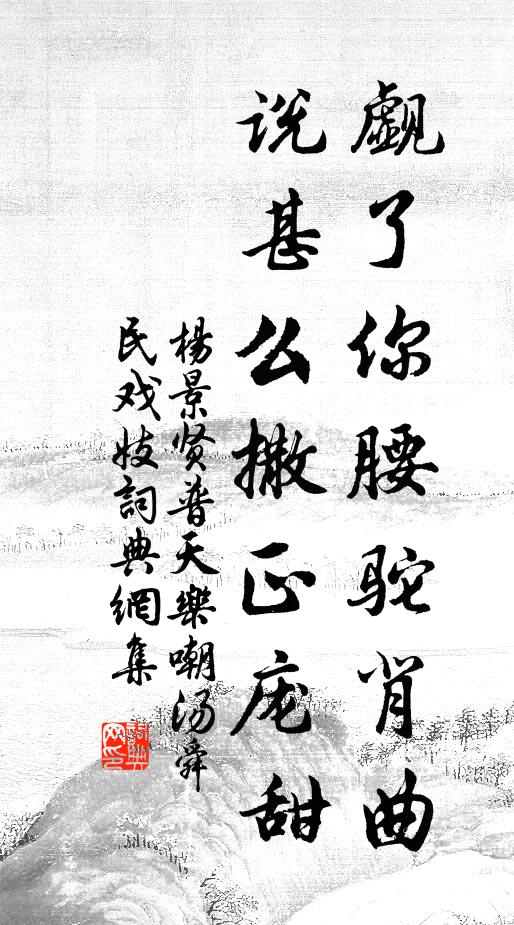 覷了你腰驼背曲
说甚么撒正庞甜
楊景贤普天樂嘲汤舜
民戏妓詞典網集